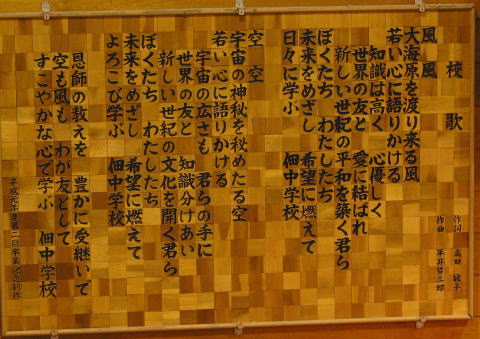 校歌
作詞 高田敏子
作曲 平井哲三郎
風 風
大海原を渡り来る風
若い心に語りかける
知識は高く 心優しく
世界の友と 愛に結ばれ
新しい世紀の平和を築く君ら
ぼくたち わたしたち
未来をめざし 希望に燃えて
日々に学ぶ 佃中学校
空 空
宇宙の神秘を秘めたる空
若い心に語りかける
宇宙の広さも 君らの手に
世界の友と 知識分けあい
新しい世紀の文化を開く君ら
ぼくたち わたしたち
未来をめざし 希望に燃えて
よろこび学ぶ 佃中学校
恩師の教えを 豊かに受継いで
空も風も わが友として
すこやかな心で学ぶ 佃中学校
平成元年度第二回卒業記念制作